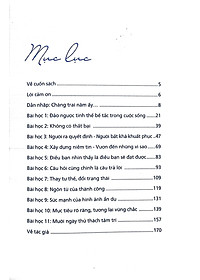 Mục lục
Về cuốn sách 5
Lời cảm ơn 6
Dẫn nhập: Chàng trai năm ấy... 8
Bài học 1: Đảo ngược tình thế bế tắc trong cuộc sống 21
Bài học 2: Không có thất bại 39
Bài học 3: Người ra quyết định - Người bất khả khuất phục 47
Bài học 4: Xây dựng niềm tin - Vươn đến những vì sao 57
Bài học 5: Điều bạn nhìn thấy là điều bạn sẽ đạt được 81
Bài học 6: Câu hỏi cũng chính là câu trả lời 97
Bài học 7: Thay tư thế, đổi trạng thái 109
Bài học 8: Ngôn từ của thành công 119
Bài học 9: Sức mạnh của hình ảnh ẩn dụ 131
Bài học 10: Mục tiêu rõ ràng, tương lai vững chắc 139
Bài học 11: Mười ngày thử thách tâm trí 157
Về tác giả 170